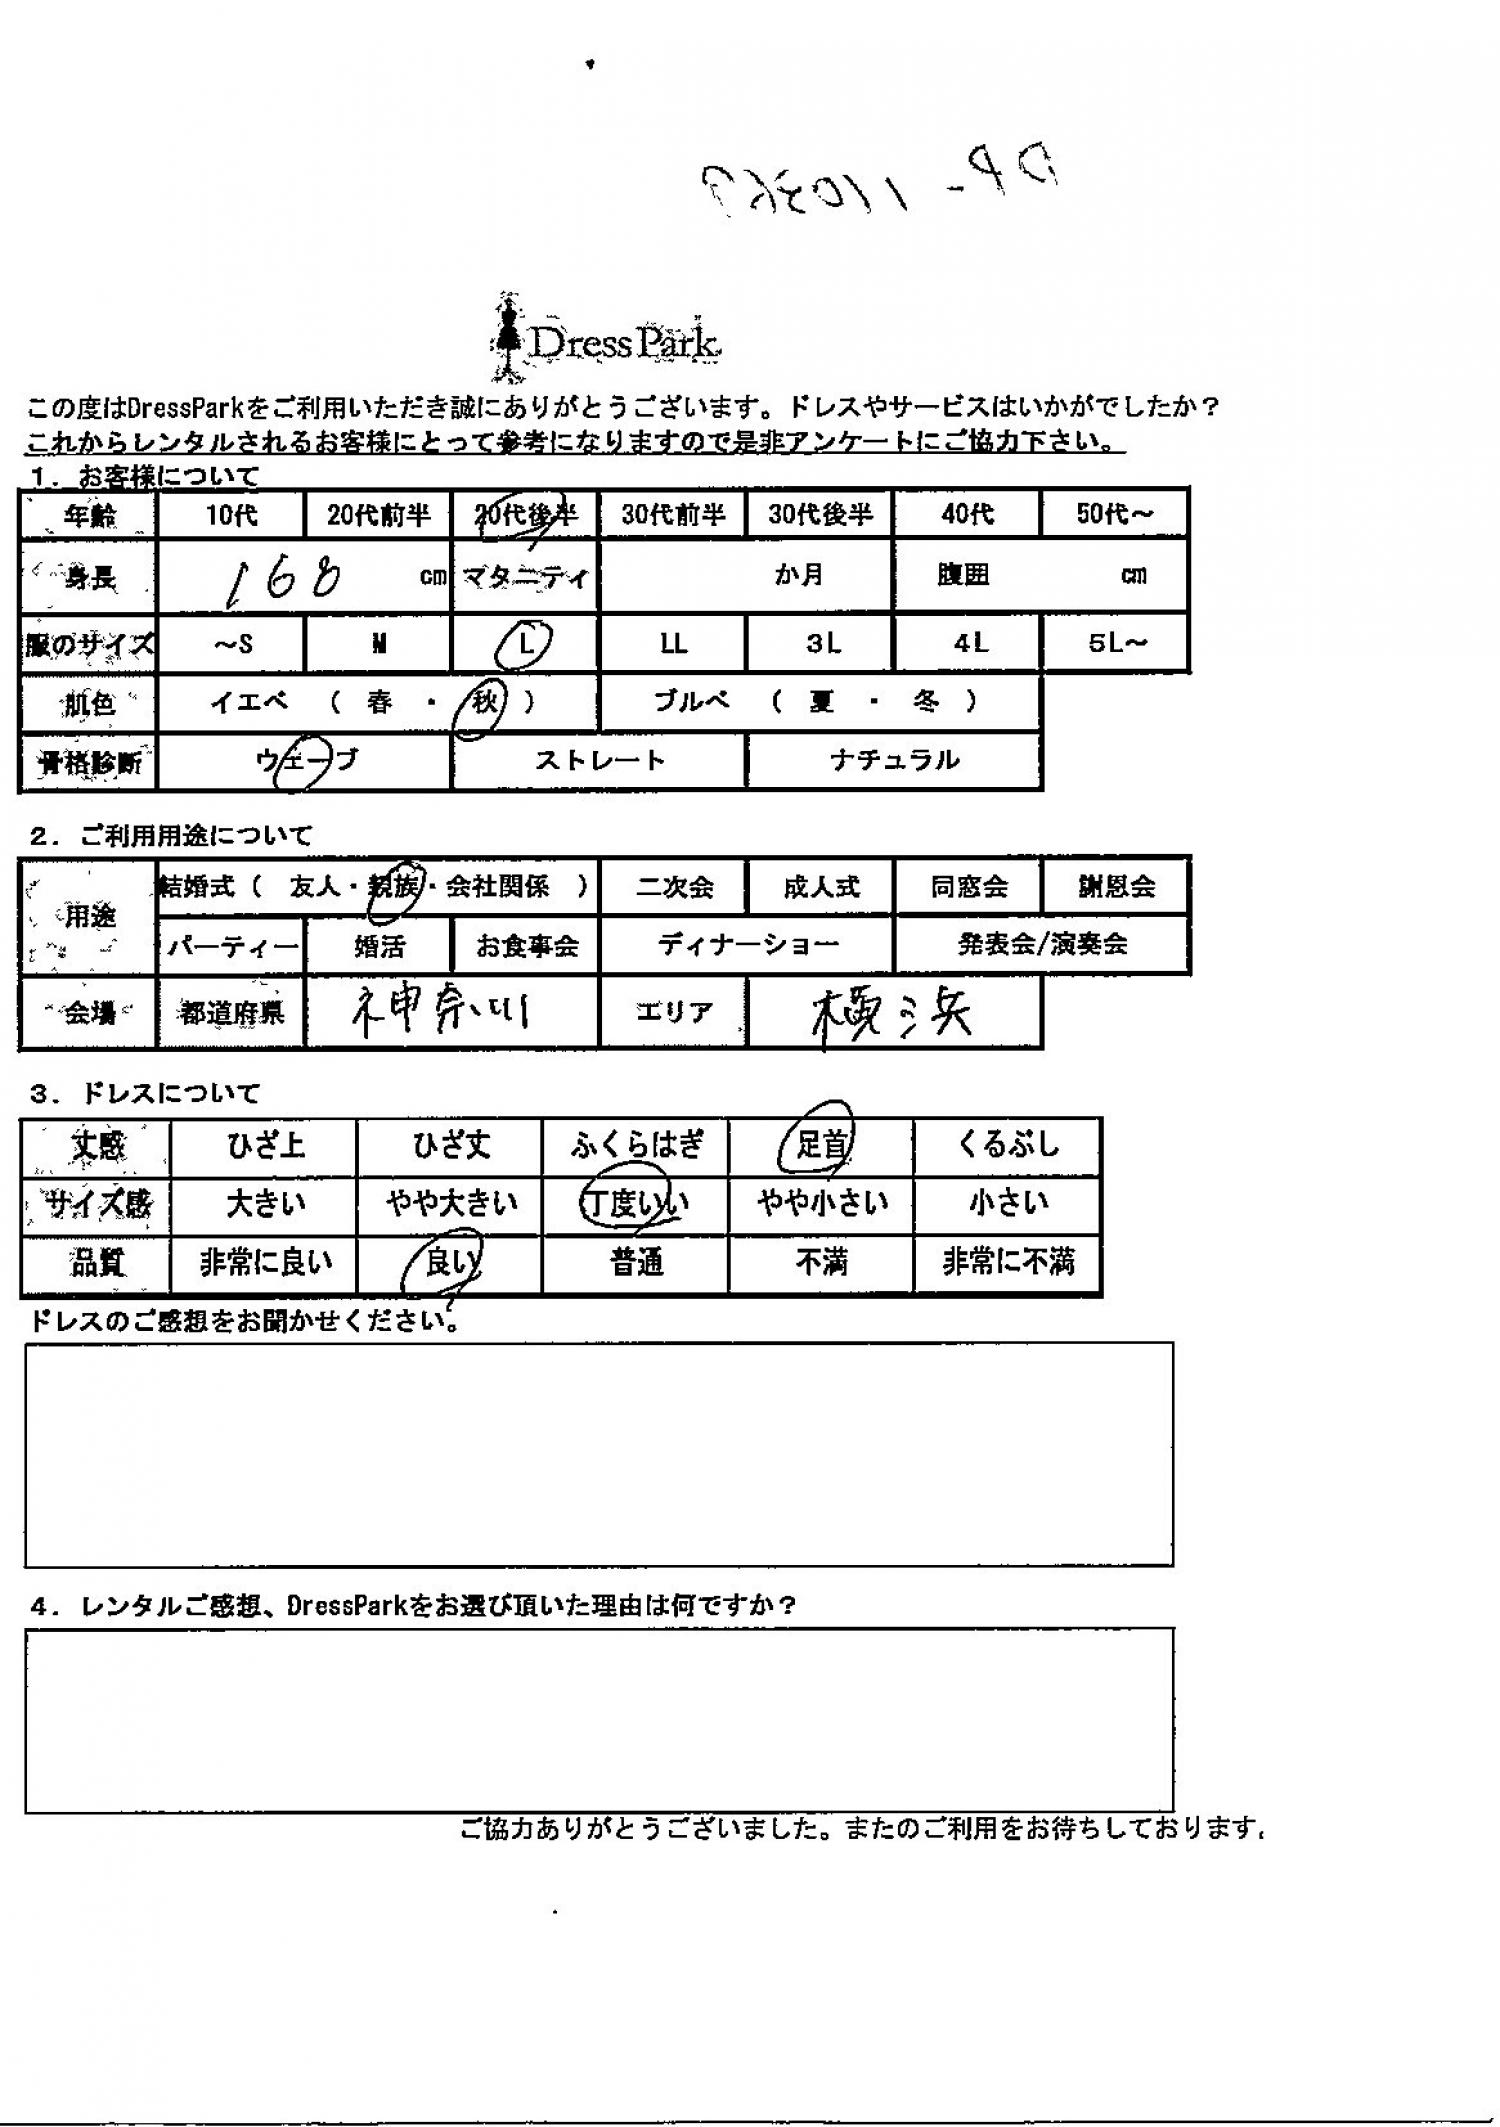 DressPark
この度はDressParkをご利用いただき誠にありがとうございます。ドレスやサービスはいかがでしたか？
これからレンタルされるお客様にとって参考になりますので是非アンケートにご協力下さい。
１．お客様について
年齢 10代 20代前半 20代後半 30代前半 30代後半 40代 50代～
身長 168 cm マタニティ か月 腹囲 cm
服のサイズ ～S M L LL 3L 4L 5L～
肌色 イエベ （ 春 ・ 秋 ） ブルベ （ 夏 ・ 冬 ）
骨格診断 ウェーブ ストレート ナチュラル
２．ご利用用途について
用途 結婚式（ 友人・親族・会社関係 ） 二次会 成人式 同窓会 謝恩会
パーティー 婚活 お食事会 ディナーショー 発表会/演奏会
会場 都道府県 神奈川 エリア 横浜
３．ドレスについて
丈感 ひざ上 ひざ丈 ふくらはぎ 足首 くるぶし
サイズ感 大きい やや大きい 丁度いい やや小さい 小さい
品質 非常に良い 良い 普通 不満 非常に不満
ドレスのご感想をお聞かせください。
４．レンタルご感想、DressParkをお選び頂いた理由は何ですか？
ご協力ありがとうございました。またのご利用をお待ちしております。